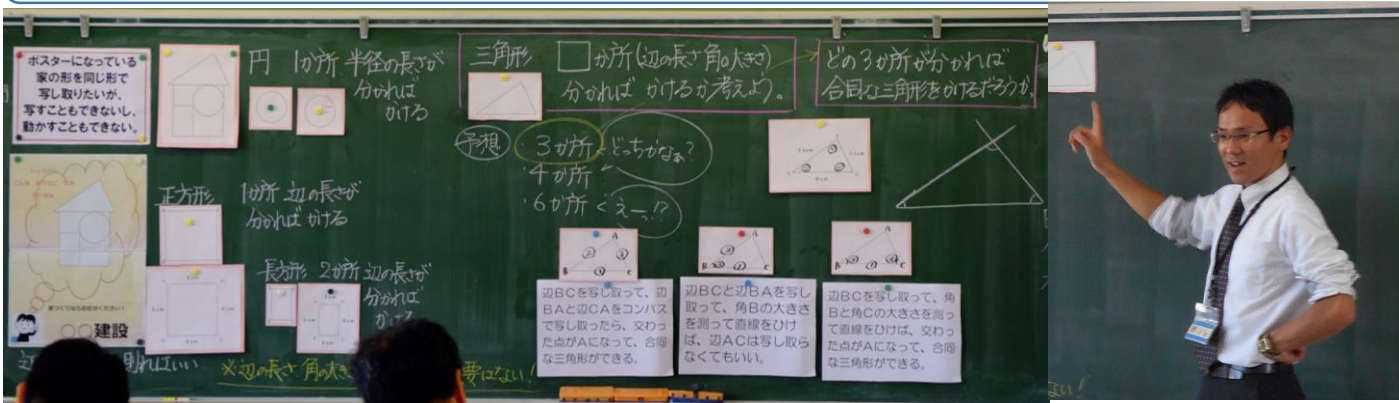 ポスターになっている
家の形を同じ形で
写し取りたいが、
写すこともできないし、
動かすこともできない。
円 1か所 半径の長さが
分かれば
かける
正方形 1か所 辺の長さが
分かれば かける
長方形 2か所 辺の長さが
分かれば
かける
○○建設
※辺の長さ 角の大き
要はない!
三角形 □か所(辺の長さ 角の大きさ)
分かれば かけるか考えよう。
どの3か所が分かれば
合同な三角形をかけるだろうか。
予想 3か所 どっちかなぁ?
・4か所
・6か所 < えーっ!?
A
B C
辺BCを写し取って、辺
BAと辺CAをコンパス
で写し取ったら、交わっ
た点がAになって、合同
な三角形ができる。
A
B C
辺BCと辺BAを写し
取って、角Bの大きさ
を測って直線をひけ
ば、辺ACは写し取ら
なくてもいい。
A
B C
辺BCを写し取って、角
Bと角Cの大きさを測っ
て直線をひけば、交わっ
た点がAになって、合同
な三角形ができる。